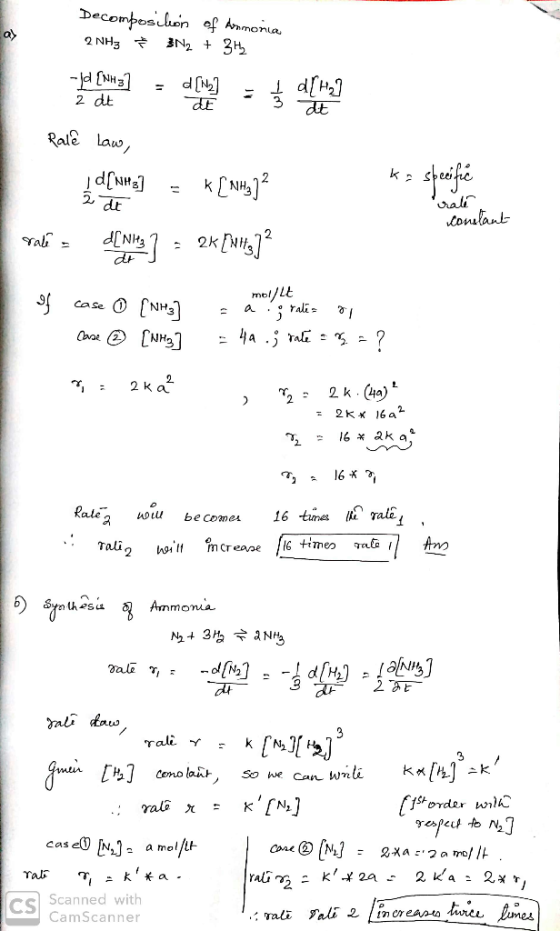 Decomposition of Ammonia
a) 2NH3 ⇌ 3N2 + 3H2
-1d[NH3]/2 dt = d[N2]/dt = 1/3 d[H2]/dt
Rate Law,
1/2 d[NH3]/dt = K[NH3]² K = specific rate constant
rate = d[NH3]/dt = 2K[NH3]²
If case ① [NH3] = a mol/Lt .; rate = r1
Case ② [NH3] = 4a .; rate = r2 = ?
r1 = 2Ka² , r2 = 2K.(4a)²
= 2K * 16a²
r2 = 16 * 2Ka²
r2 = 16 * r1
Rate2 will becomes 16 times the rate1.
∴ rate2 will increase 16 times rate 1 Ans
b) Synthesis of Ammonia
N2 + 3H2 ⇌ 2NH3
rate r1 = -d[N2]/dt = -1/3 d[H2]/dt = 1/2 d[NH3]/dt
rate Law,
rate r = K[N2][H2]³
Given [H2] constant, so we can write K*[H2]³ = K'
∴ rate r = K'[N2] [1st order with respect to N2]
case① [N2] = a mol/Lt
rate r1 = K' * a.
case② [N2] = 2*a = 2a mol/lt.
rate r2 = K' * 2a = 2K'a = 2*r1
∴ rate rate 2 increases twice times
CS Scanned with
CamScanner